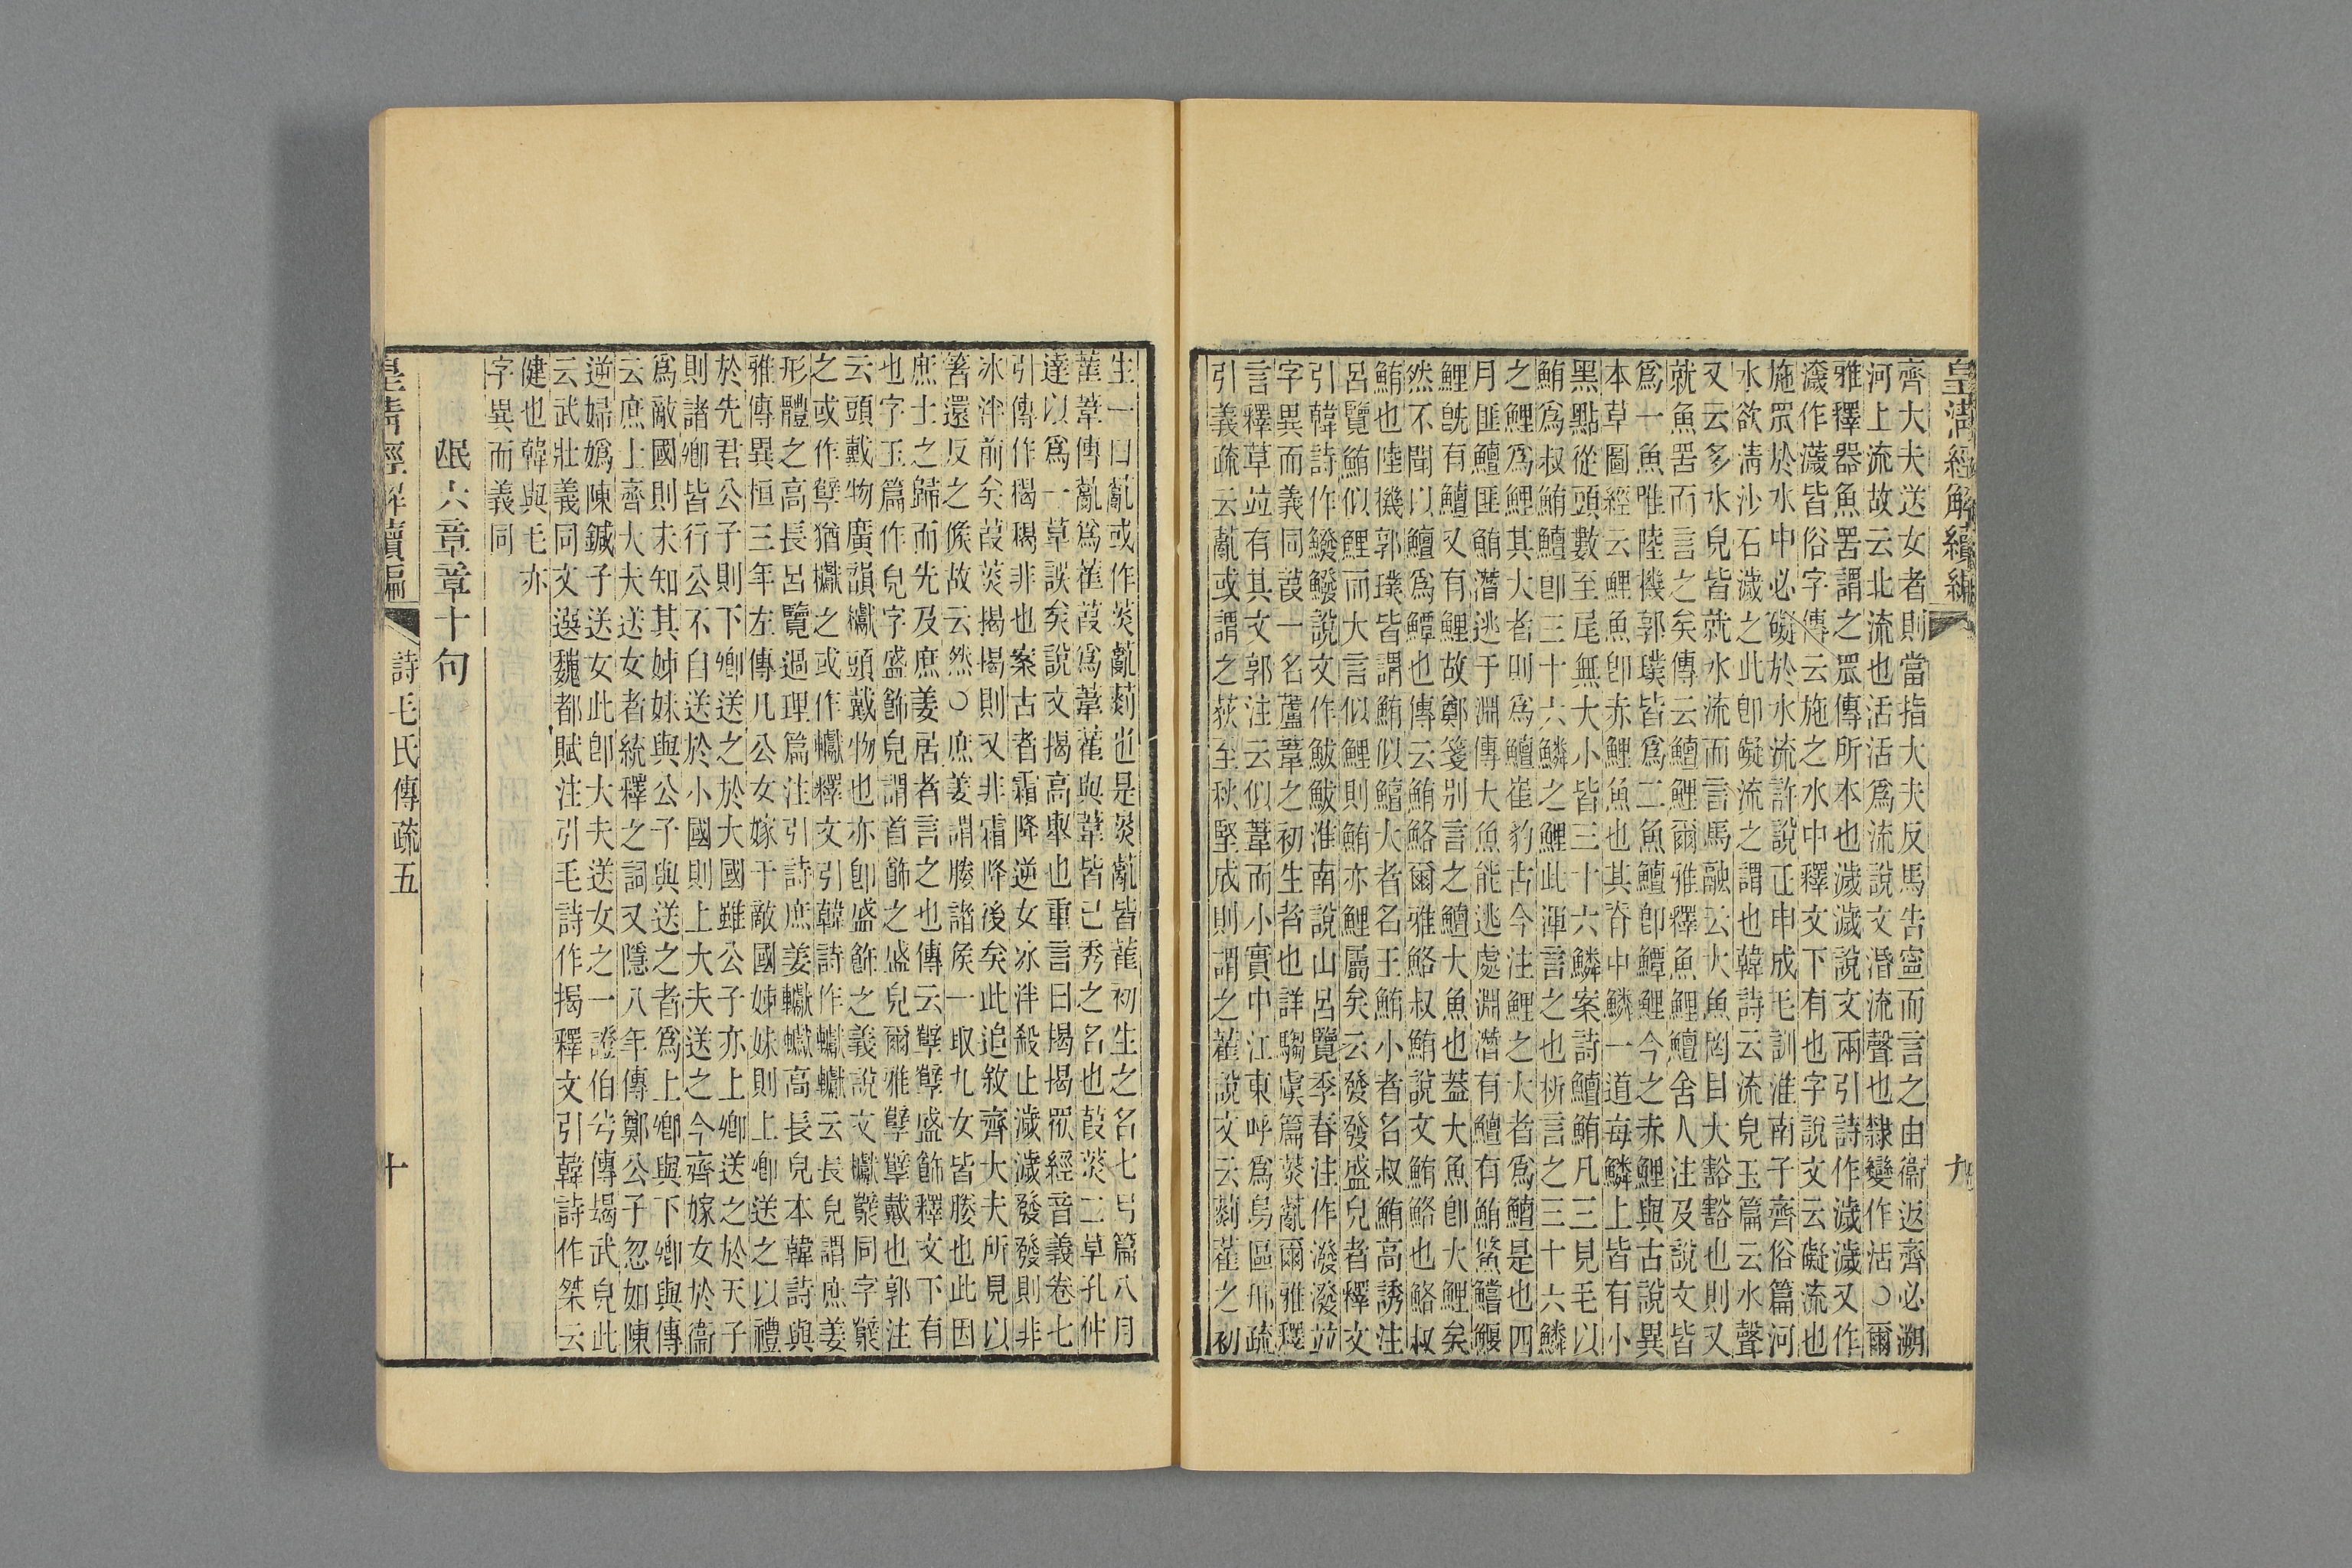 皇清經解續編
九
齊大夫送女者則當指大夫反馬告寧而言之由衞返齊必溯
河上流故云北流也活活爲流說文㴉流聲也隸變作活○爾
雅釋器魚罟謂之罛傳所本也濊濊說文兩引詩作濊濊又作
濊作薉皆俗字傳云施之水中釋文下有也字說文云礙流也
施罛於水中必礙於水流許說正申成毛訓淮南子齊俗篇河
水欲淸沙石濊之此卽礙流之謂也韓詩云流皃玉篇云水聲
又云多水皃皆就水流而言馬融云大魚罔目大豁豁也則又
就魚罟而言之矣傳云鱣鯉爾雅釋魚鯉鱣舍人注及說文皆
爲一魚唯陸機郭璞皆爲二魚鱣卽鱏鯉今之赤鯉與古說異
本草圖經云鯉魚卽赤鯉魚也其脊中鱗一道每鱗上皆有小
黑點從頭數至尾無大小皆三十六鱗案詩鱣鮪凡三見毛以
鮪爲叔鮪鱣卽三十六鱗之鯉此渾言之也析言之三十六鱗
之鯉爲鯉其大者則爲鱣崔豹古今注鯉之大者爲鱣是也四
月匪鱣匪鮪潛逃于淵傳大魚能逃處淵潛有鱣有鮪鰷鱨鰋
鯉旣有鱣又有鯉故鄭箋別言之鱣大魚也蓋大魚卽大鯉矣
然不聞以鱣爲鱏也傳云鮪鮥爾雅鮥叔鮪說文鮪鮥也鮥叔
鮪也陸機郭璞皆謂鮪似鱣大者名王鮪小者名叔鮪高誘注
呂覽鮪似鯉而大言似鯉則鮪亦鯉屬矣云發發盛皃者釋文
引韓詩作鱍鱍說文作鮁鮁淮南說山呂覽季春注作潑潑竝
字異而義同葭一名蘆葦之初生者也詳騶虞篇菼薍爾雅釋
言釋草竝有其文郭注云似葦而小實中江東呼爲烏蓲邢疏
引義疏云薍或謂之荻至秋堅成則謂之萑說文云薍萑之初
生一曰薍或作菼薍䓤也是菼薍皆萑初生之名七月篇八月
萑葦傳薍爲萑葭爲葦萑與葦皆已秀之名也葭菼二草孔仲
達以爲一草誤矣說文揭高舉也重言曰揭揭眾經音義卷七
引傳作楬楬非也案古者霜降逆女冰泮殺止濊濊發發則非
冰泮前矣葭菼揭揭則又非霜降後矣此追敘齊大夫所見以
箸還反之候故云然○庶姜謂媵諸侯一取九女皆媵也此因
庶士之歸而先及庶姜居者言之也傳云孼孼盛飾釋文下有
也字玉篇作皃字盛飾皃謂首飾之盛皃爾雅孼孼戴也郭注
云頭戴物廣韻钀頭戴物也亦卽盛飾之義說文钀櫱同字櫱
之或作孼猶钀之或作轙釋文引韓詩作钀钀云長皃謂庶姜
形體之高長呂覽過理篇注引詩庶姜钀钀高長皃本韓詩與
雅傳異桓三年左傳凡公女嫁于敵國姊妹則上卿送之以禮
於先君公子則下卿送之於大國雖公子亦上卿送之於天子
則諸卿皆行公不自送於小國則上大夫送之今齊嫁女於衞
爲敵國則未知其姊妹與公子與送之者爲上卿與下卿與傳
云庶士齊大夫送女者統釋之詞又隱八年傳鄭公子忽如陳
逆婦嬀陳鍼子送女此卽大夫送女之一證伯兮傳朅武皃此
云武壯義同文選魏都賦注引毛詩作揭釋文引韓詩作桀云
健也韓與毛亦
字異而義同
氓六章章十句
皇清經解續編
詩毛氏傳疏五
十